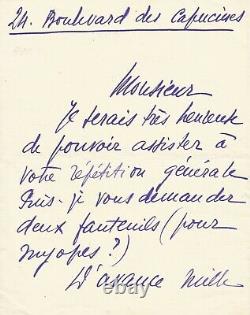 24. Boulevard des Capucines
Monsieur
Je serais très heureuse
de pouvoir assister à
votre répétition générale
Puis-je vous demander
deux fauteuils (pour
myopes?)
D'avance mille
ebay